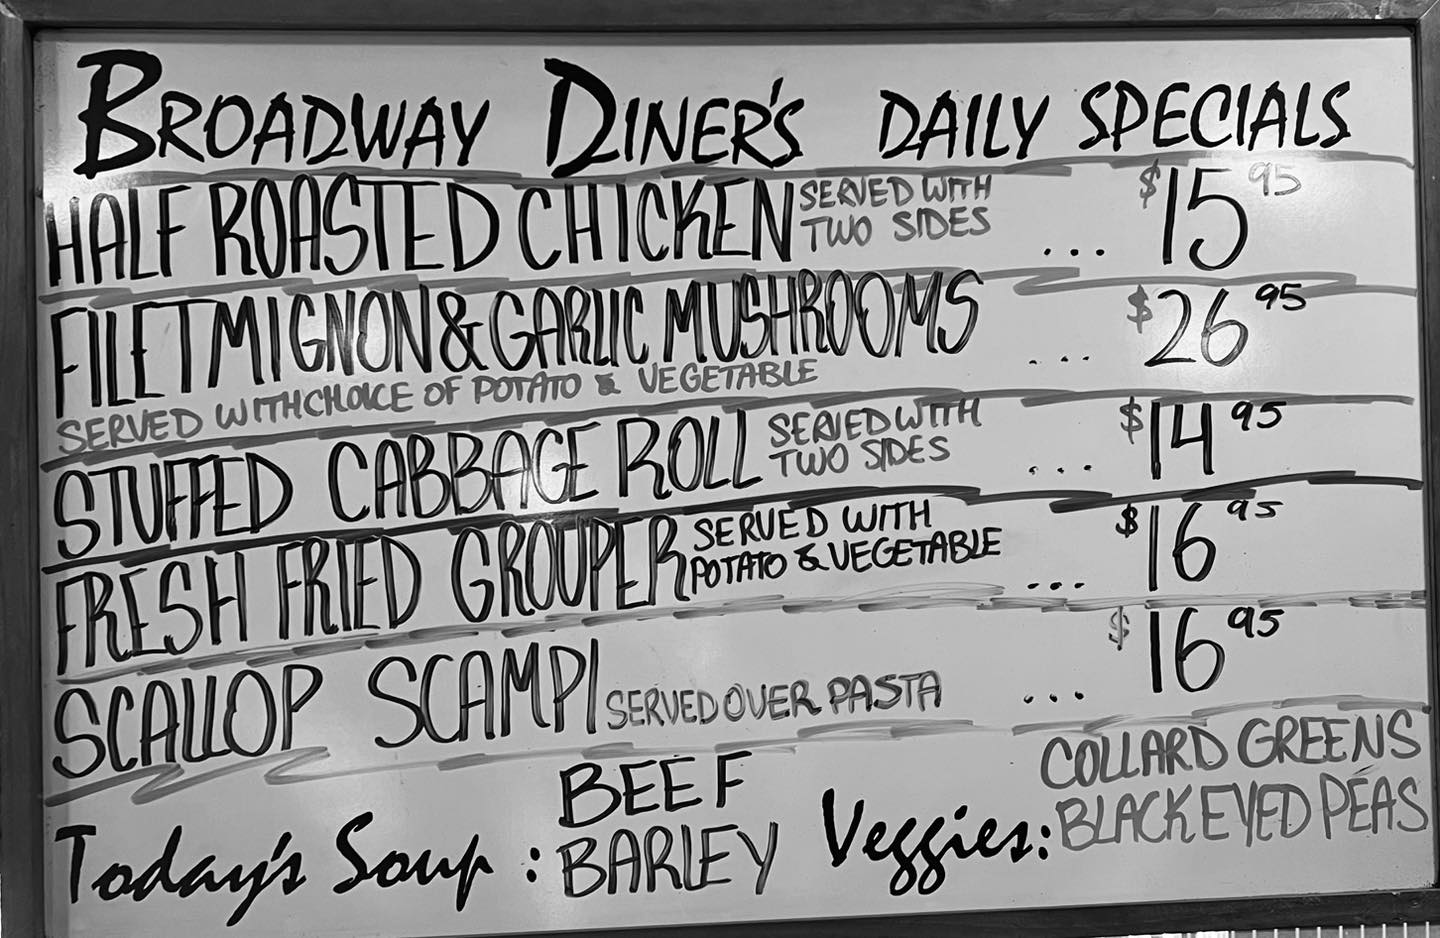 BROADWAY DINER'S DAILY SPECIALS
HALF ROASTED CHICKEN SERVED WITH TWO SIDES ... $15 95
FILET MIGNON & GARLIC MUSHROOMS ... $26 95
SERVED WITH CHOICE OF POTATO & VEGETABLE
STUFFED CABBAGE ROLL SERVED WITH TWO SIDES ... $14 95
FRESH FRIED GROUPER SERVED WITH POTATO & VEGETABLE ... $16 95
SCALLOP SCAMPI SERVED OVER PASTA ... $16 95
Today's Soup : BEEF BARLEY
Veggies: COLLARD GREENS
BLACK EYED PEAS